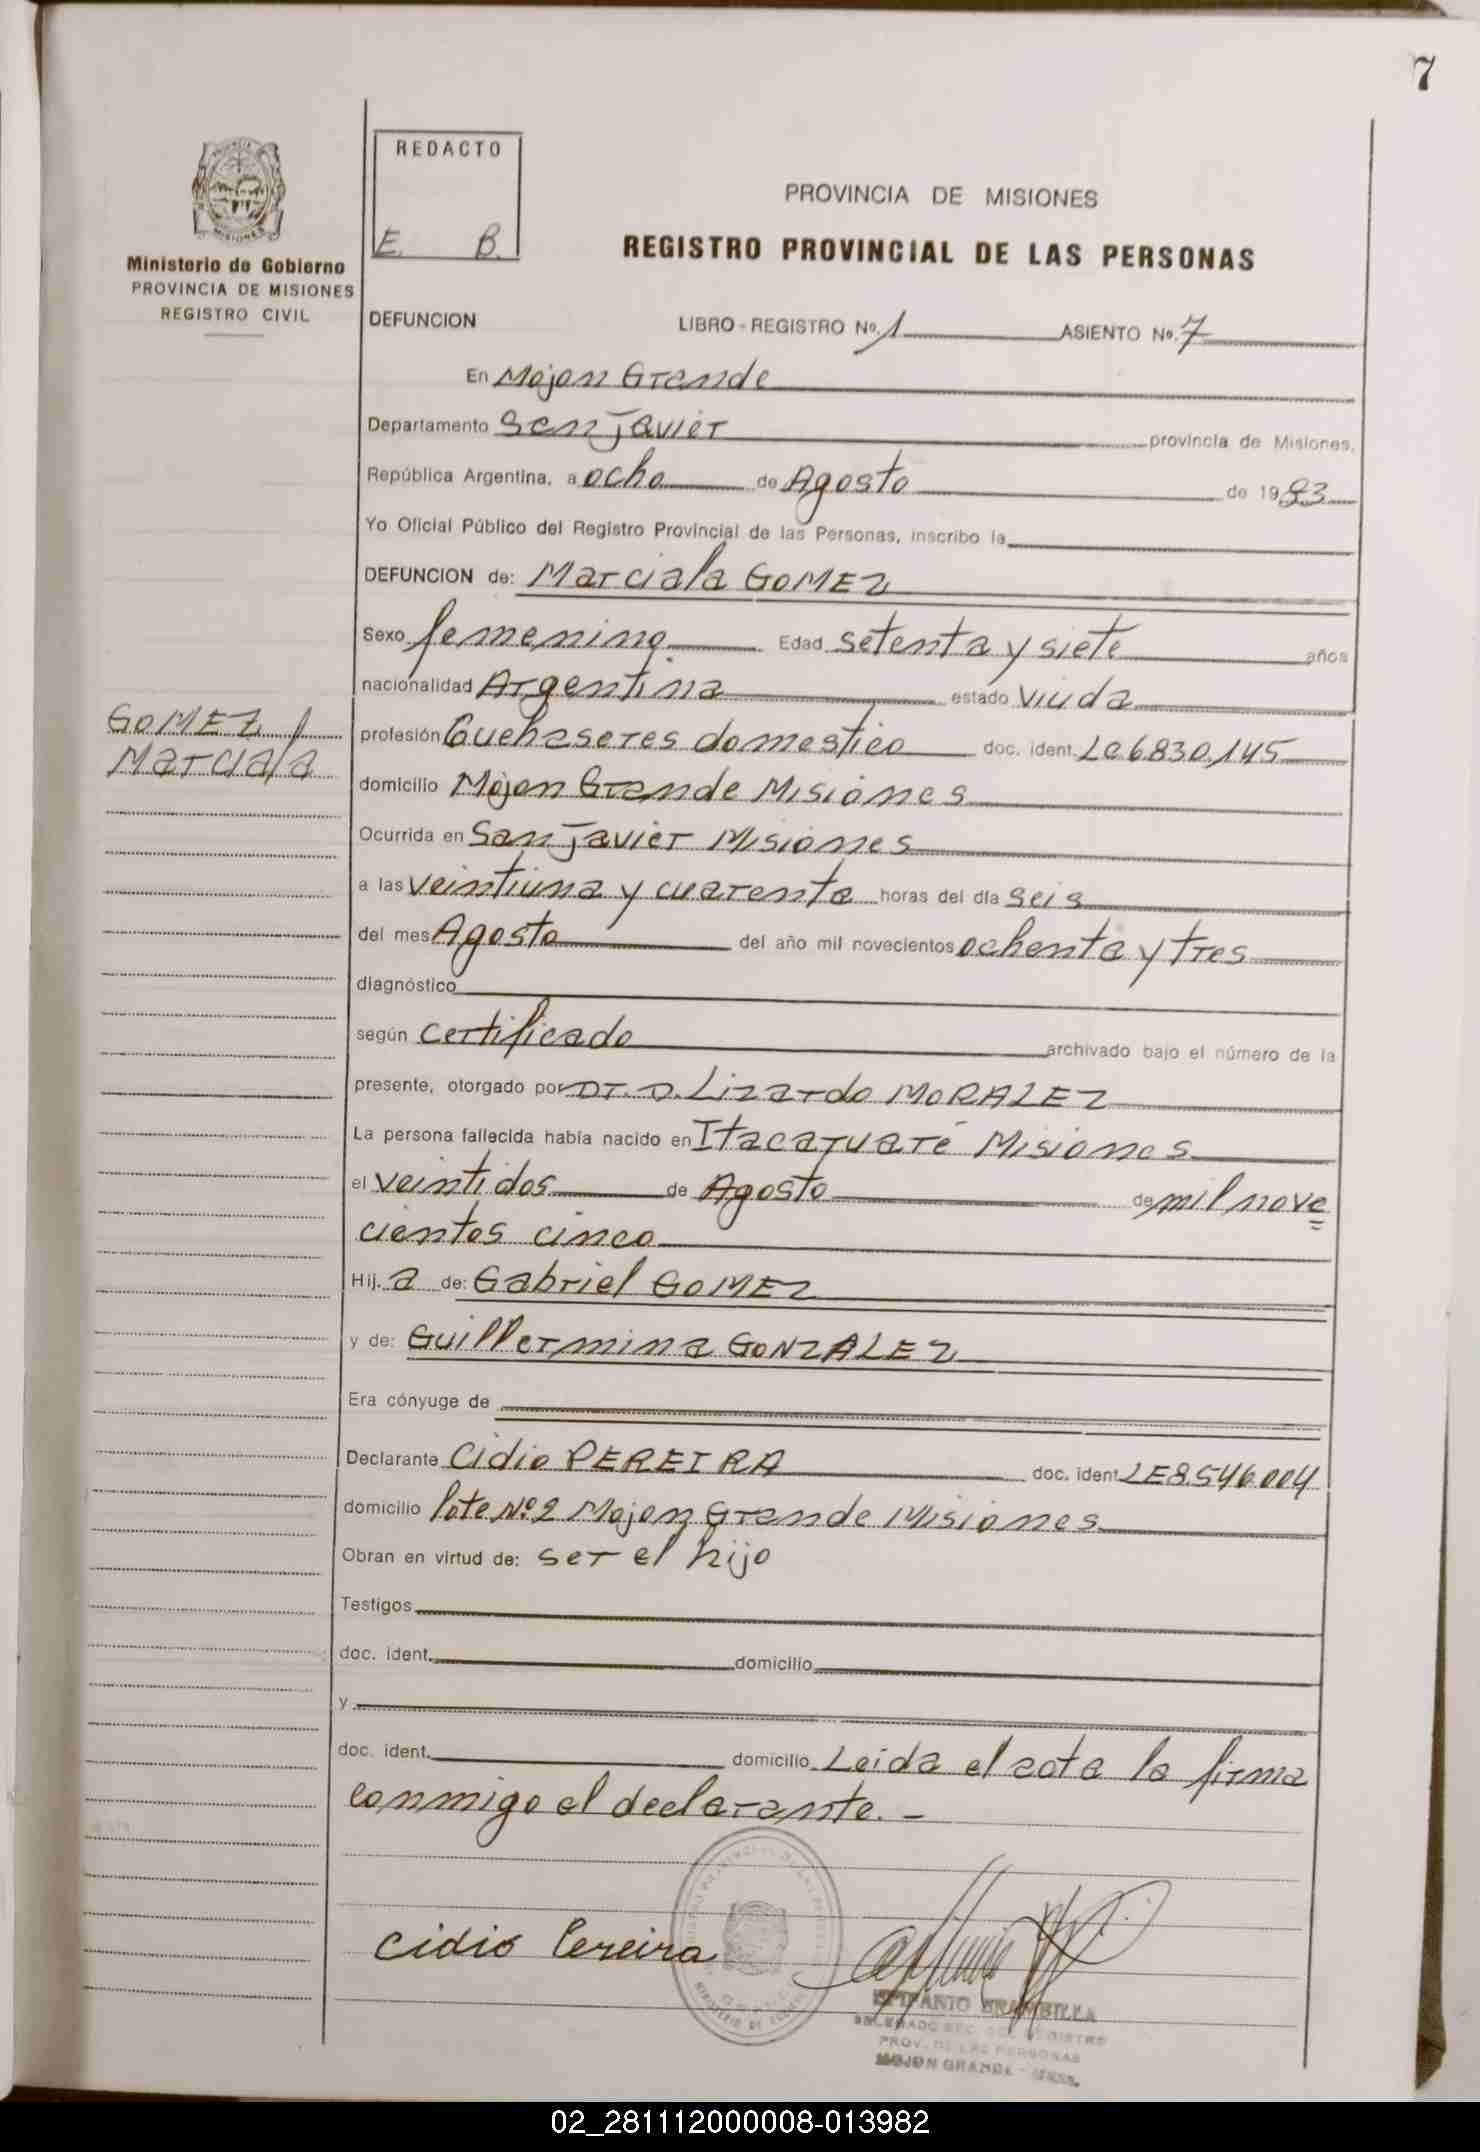 7
REDACTO
E. B.
PROVINCIA DE MISIONES
REGISTRO PROVINCIAL DE LAS PERSONAS
Ministerio de Gobierno
PROVINCIA DE MISIONES
REGISTRO CIVIL
DEFUNCION LIBRO - REGISTRO Nº. 1 ASIENTO Nº. 7
En Mojon Grande
Departamento San Javier provincia de Misiones,
República Argentina, a ocho de Agosto de 1983
Yo Oficial Público del Registro Provincial de las Personas, inscribo la
DEFUNCION de: Marciala GOMEZ
Sexo femenino Edad setenta y siete años
nacionalidad Argentina estado viuda
GOMEZ
Marciala
profesión Quehaseres domestico doc. ident. LC6.830.145
domicilio Mojon Grande Misiones
Ocurrida en San Javier Misiones
a las veintiuna y cuarenta horas del día seis
del mes Agosto del año mil novecientos ochenta y tres
diagnóstico
según certificado archivado bajo el número de la
presente, otorgado por Dr. D. Lizardo MORALEZ
La persona fallecida había nacido en Itacaruaré Misiones
el veintidos de Agosto de mil nove
cientos cinco
Hij. a de: Gabriel GOMEZ
y de: Guillermina GONZALEZ
Era cónyuge de
Declarante Cidio PEREIRA doc. ident. LE8.546.004
domicilio lote Nº 2 Mojon Grande Misiones
Obran en virtud de: ser el hijo
Testigos
doc. ident. domicilio
y
doc. ident. domicilio Leida el acta la firma
conmigo el declarante. -
Cidio Pereira
EPIFANIO BRAMBILLA
DELEGADO REGISTRO
PROV. DE LAS PERSONAS
MOJON GRANDE - MNES.
02_281112000008-013982